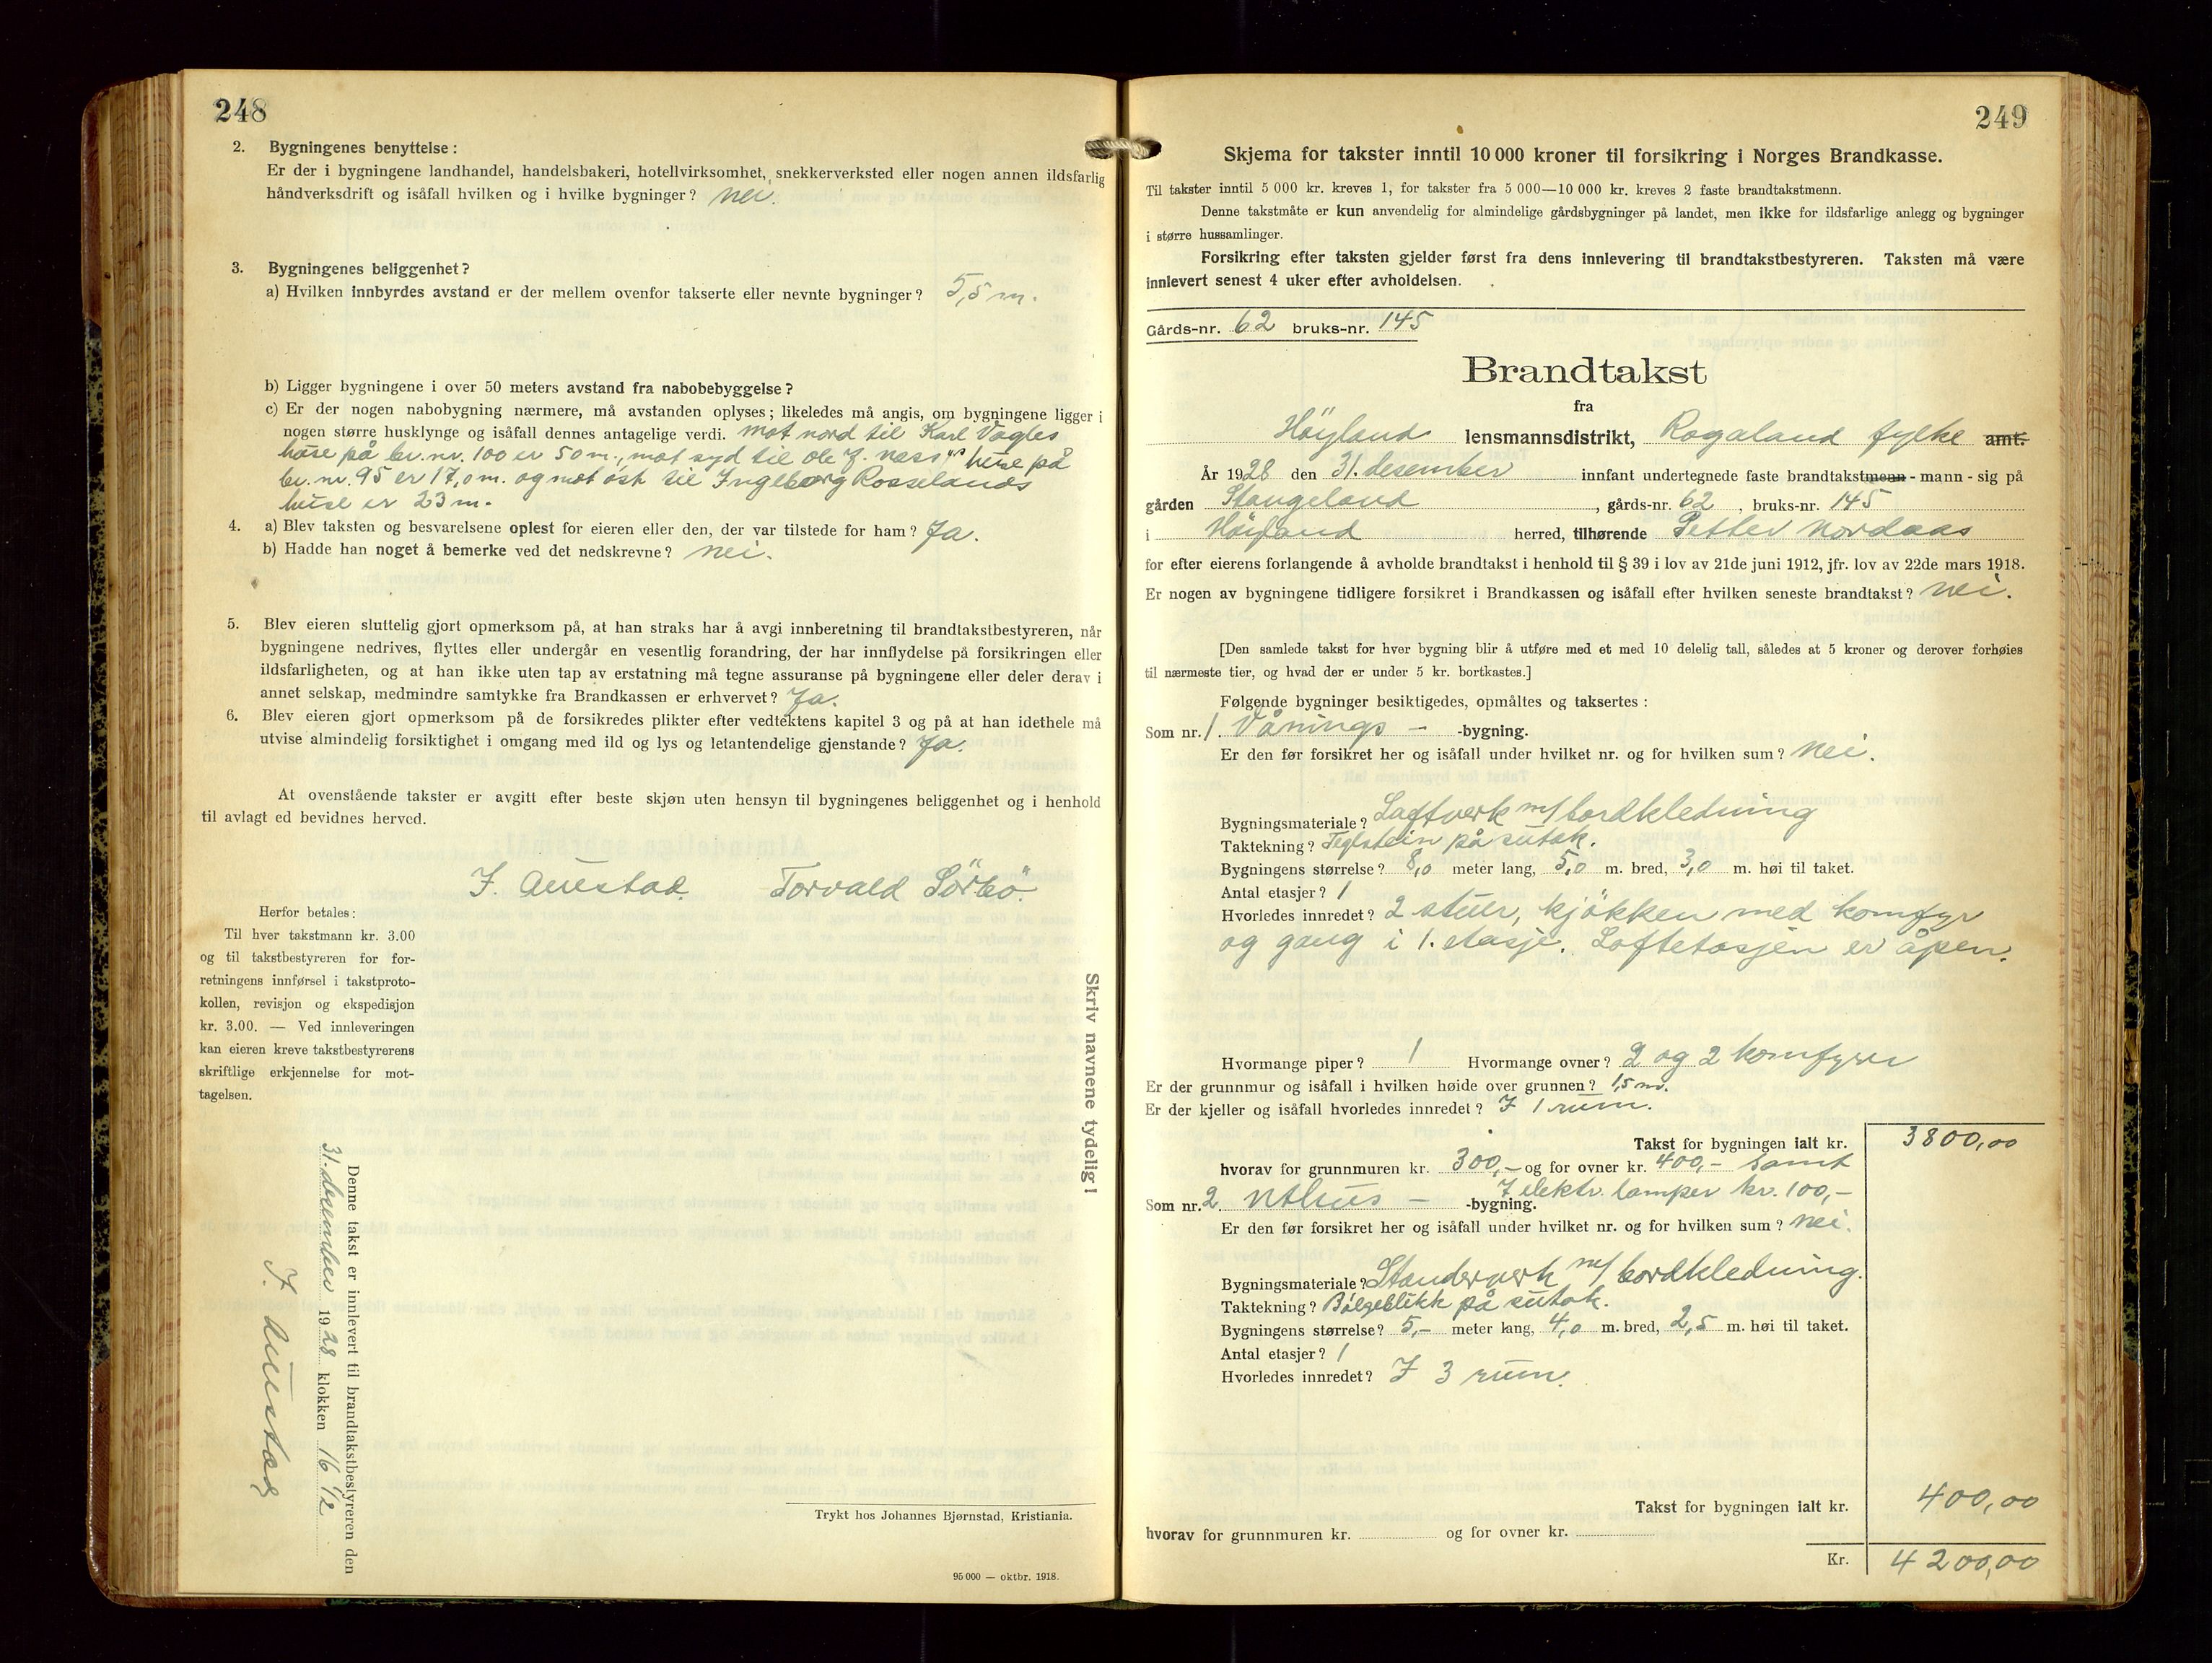 248
2. Bygningenes benyttelse:
Er der i bygningene landhandel, handelsbakeri, hotellvirksomhet, snekkerverksted eller nogen annen ildsfarlig
håndverksdrift og isåfall hvilken og i hvilke bygninger? nei.
3. Bygningenes beliggenhet?
a) Hvilken innbyrdes avstand er der mellem ovenfor takserte eller nevnte bygninger? 5,5 m.
b) Ligger bygningene i over 50 meters avstand fra nabobebyggelse?
c) Er der nogen nabobygning nærmere, må avstanden oplyses; likeledes må angis, om bygningene ligger i
nogen større husklynge og isåfall dennes antagelige verdi. mot nord til Karl Vagles
huse på br.nr. 100 er 50 m., mot syd til Ole J. Næss's huse på
br.nr. 95 er 17,0 m. og mot øst til Ingeborg Rosselands
huse er 23 m.
4. a) Blev taksten og besvarelsene oplest for eieren eller den, der var tilstede for ham? Ja.
b) Hadde han noget å bemerke ved det nedskrevne? nei.
5. Blev eieren sluttelig gjort opmerksom på, at han straks har å avgi innberetning til brandtakstbestyreren, når
bygningene nedrives, flyttes eller undergår en vesentlig forandring, der har innflydelse på forsikringen eller
ildsfarligheten, og at han ikke uten tap av erstatning må tegne assuranse på bygningene eller deler derav i
annet selskap, medmindre samtykke fra Brandkassen er erhvervet? Ja.
6. Blev eieren gjort opmerksom på de forsikredes plikter efter vedtektens kapitel 3 og på at han idethele må
utvise almindelig forsiktighet i omgang med ild og lys og letantendelige gjenstande? Ja.
At ovenstående takster er avgitt efter beste skjøn uten hensyn til bygningenes beliggenhet og i henhold
til avlagt ed bevidnes herved.
J. Auestad. Torvald Sörbö.
Herfor betales:
Til hver takstmann kr. 3.00
og til takstbestyreren for for-
retningens innførsel i takstproto-
kollen, revisjon og ekspedisjon
kr. 3.00. — Ved innleveringen
kan eieren kreve takstbestyrerens
skriftlige erkjennelse for mot-
tagelsen.
Skriv navnene tydelig!
Denne takst er innlevert til brandtakstbestyreren den
31. desember 1928 klokken 16 1/2
J. Auestad
Trykt hos Johannes Bjørnstad, Kristiania.
95 000 — oktbr. 1918.
249
Skjema for takster inntil 10 000 kroner til forsikring i Norges Brandkasse.
Til takster inntil 5 000 kr. kreves 1, for takster fra 5 000—10 000 kr. kreves 2 faste brandtakstmenn.
Denne takstmåte er kun anvendelig for almindelige gårdsbygninger på landet, men ikke for ildsfarlige anlegg og bygninger
i større hussamlinger.
Forsikring efter taksten gjelder først fra dens innlevering til brandtakstbestyreren. Taksten må være
innlevert senest 4 uker efter avholdelsen.
Gårds-nr. 62 bruks-nr. 145
Brandtakst
fra
Höyland lensmannsdistrikt, Rogaland fylke amt.
År 1928 den 31. desember innfant undertegnede faste brandtakstmenn - mann - sig på
gården Stangeland, gårds-nr. 62, bruks-nr. 145
i Höyland herred, tilhørende Petter Nordaas
for efter eierens forlangende å avholde brandtakst i henhold til § 39 i lov av 21de juni 1912, jfr. lov av 22de mars 1918.
Er nogen av bygningene tidligere forsikret i Brandkassen og isåfall efter hvilken seneste brandtakst? nei.
[Den samlede takst for hver bygning blir å utføre med et med 10 delelig tall, således at 5 kroner og derover forhøies
til nærmeste tier, og hvad der er under 5 kr. bortkastes.]
Følgende bygninger besiktigedes, opmåltes og taksertes:
Som nr. 1. Vånings - -bygning.
Er den før forsikret her og isåfall under hvilket nr. og for hvilken sum? nei.
Bygningsmateriale? Laftverk m/bordkledning
Taktekning? Teglstein på sutak.
Bygningens størrelse? 8,0 meter lang, 5,0 m. bred, 3,0 m. høi til taket.
Antal etasjer? 1
Hvorledes innredet? 2 stuer, kjökken med komfyr
og gang i 1. etasje. Loftetasjen er åpen.
Hvormange piper? 1 Hvormange ovner? 2 og 2 komfyrer
Er der grunnmur og isåfall i hvilken høide over grunnen? 1,5 m.
Er der kjeller og isåfall hvorledes innredet? I 1 rum.
Takst for bygningen ialt kr. 3800,00
hvorav for grunnmuren kr. 300,- og for ovner kr. 400,- samt
7 elektr. lamper kr. 100,-
Som nr. 2. Uthus - -bygning.
Er den før forsikret her og isåfall under hvilket nr. og for hvilken sum? nei.
Bygningsmateriale? Standerverk m/bordkledning.
Taktekning? Bölgeblikk på sutak.
Bygningens størrelse? 5,- meter lang, 4,0 m. bred, 2,5 m. høi til taket.
Antal etasjer? 1
Hvorledes innredet? I 3 rum.
Takst for bygningen ialt kr. 400,00
hvorav for grunnmuren kr. og for ovner kr.
Kr. 4200,00